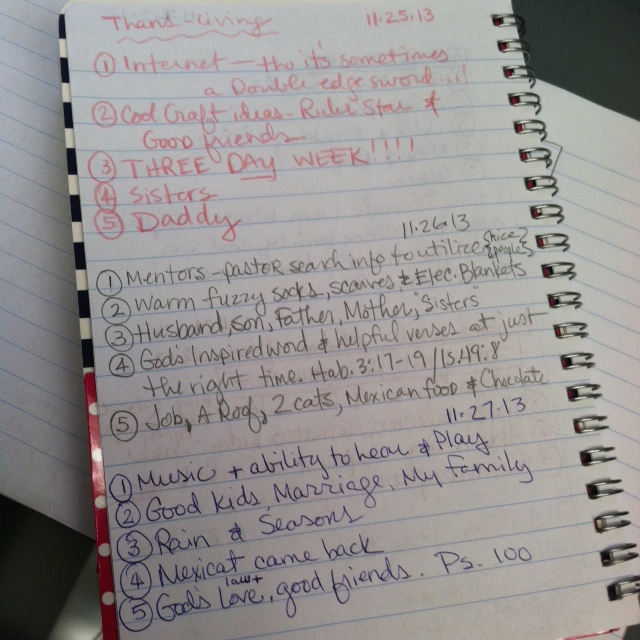 Thanksgiving 11.25.13
① Internet - tho it's sometimes
a Double edge sword!!!
② Cool Craft ideas - Ruler Star &
Good friends
③ THREE DAY WEEK!!!!
④ Sisters
⑤ Daddy
11.26.13
① Mentors - pastor search info to utilize
② Warm fuzzy socks, scarves & Elec. Blankets
③ Husband, Son, Father, Mother, Sisters
④ God's Inspired word & helpful verses at just
the right time. Hab. 3:17-19 / Is. 49:8
⑤ Job, A Roof, 2 cats, Mexican food & Chocolate
11.27.13
① Music + ability to hear & Play
② Good Kids, Marriage, My Family
③ Rain & Seasons
④ Mexicat came back
⑤ God's law + love, good friends. Ps. 100